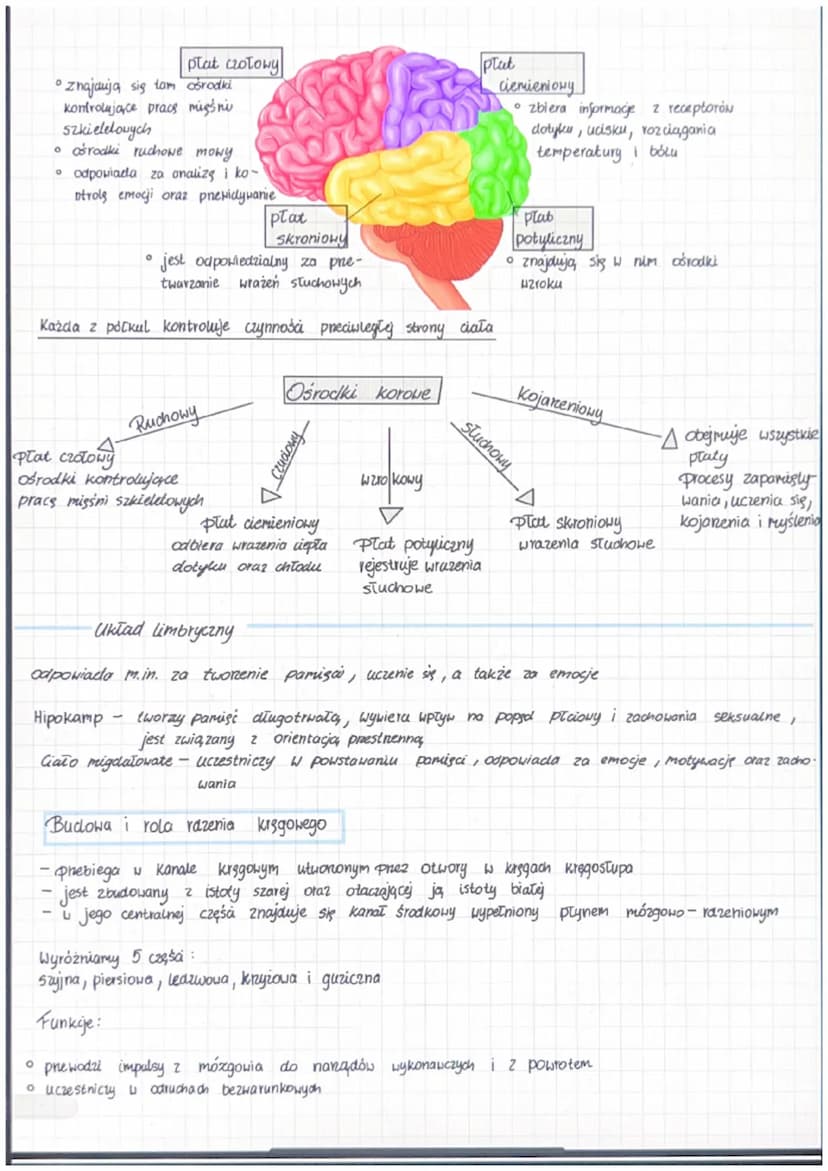 płat czołowy
° znajdują się tam ośrodki
kontrolujące pracę mięśni
szkieletowych
° ośrodki ruchowe mowy
° odpowiada za analizę i ko-
ntrolę emocji oraz przewidywanie
płat
ciemieniowy
° zbiera informacje z receptorów
dotyku, ucisku, rozciągania
temperatury i bólu
płat
skroniowy
° jest odpowiedzialny za prze-
twarzanie wrażeń słuchowych
płat
potyliczny
° znajdują się w nim ośrodki
wzroku
Każda z półkul kontroluje czynności przeciwległej strony ciała
Ośrodki korowe
Ruchowy
Płat czołowy
ośrodki kontrolujące
pracę mięśni szkieletowych
czuciowy
płat ciemieniowy
odbiera wrażenia ciepła
dotyku oraz chłodu
wzrokowy
Płat potyliczny
rejestruje wrażenia
słuchowe
słuchowy
Płat skroniowy
wrażenia słuchowe
Kojarzeniowy
obejmuje wszystkie
płaty
procesy zapamięty-
wania, uczenia się,
kojarzenia i myślenia
Układ limbryczny
odpowiada m.in. za tworzenie pamięci, uczenie się, a także za emocje
Hipokamp – tworzy pamięć długotrwałą, wywiera wpływ na popęd płciowy i zachowania seksualne,
jest związany z orientacją przestrzenną
Ciało migdałowate – uczestniczy w powstawaniu pamięci, odpowiada za emocje, motywację oraz zacho-
wania
Budowa i rola rdzenia kręgowego
– przebiega w kanale kręgowym utworzonym przez otwory w kręgach kręgosłupa
– jest zbudowany z istoty szarej oraz otaczającej ją istoty białej
– w jego centralnej części znajduje się kanał środkowy wypełniony płynem mózgowo-rdzeniowym
Wyróżniamy 5 części:
szyjna, piersiowa, lędzwowa, krzyżowa i guziczna
Funkcje:
° przewodzi impulsy z mózgowia do narządów wykonawczych i z powrotem
° uczestniczy w odruchach bezwarunkowych